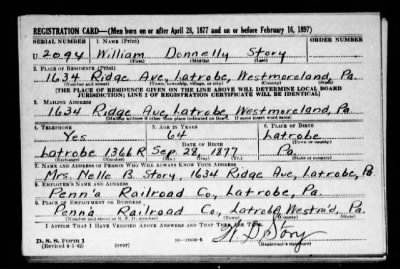 REGISTRATION CARD—(Men born on or after April 28, 1877 and on or before February 16, 1897)
SERIAL NUMBER 1. NAME (Print) ORDER NUMBER
U 2094 William Donnelly Story
(First) (Middle) (Last)
2. PLACE OF RESIDENCE (Print)
1634 Ridge Ave, Latrobe, Westmoreland, Pa.
(Number and street) (Town, township, village, or city) (County) (State)
[THE PLACE OF RESIDENCE GIVEN ON THE LINE ABOVE WILL DETERMINE LOCAL BOARD
JURISDICTION; LINE 2 OF REGISTRATION CERTIFICATE WILL BE IDENTICAL]
3. MAILING ADDRESS
1634 Ridge Ave, Latrobe, Westmoreland, Pa.
[Mailing address if other than place indicated on line 2. If same insert word same]
4. TELEPHONE 5. AGE IN YEARS 6. PLACE OF BIRTH
Yes 64 Latrobe
DATE OF BIRTH (Town or county)
Latrobe 1366 R Sep. 28, 1877 Pa.
(Exchange) (Number) (Mo.) (Day) (Yr.) (State or country)
7. NAME AND ADDRESS OF PERSON WHO WILL ALWAYS KNOW YOUR ADDRESS
Mrs. Nelle B. Story, 1634 Ridge Ave, Latrobe, Pa.
8. EMPLOYER'S NAME AND ADDRESS
Penn'a Railroad Co., Latrobe, Pa.
9. PLACE OF EMPLOYMENT OR BUSINESS
Penn'a Railroad Co., Latrobe Westm'd, Pa.
(Number and street or R. F. D. number) (Town) (County) (State)
I AFFIRM THAT I HAVE VERIFIED ABOVE ANSWERS AND THAT THEY ARE TRUE.
D. S. S. Form 1 W D Story
(Revised 4-1-42) (over) (Registrant's signature)